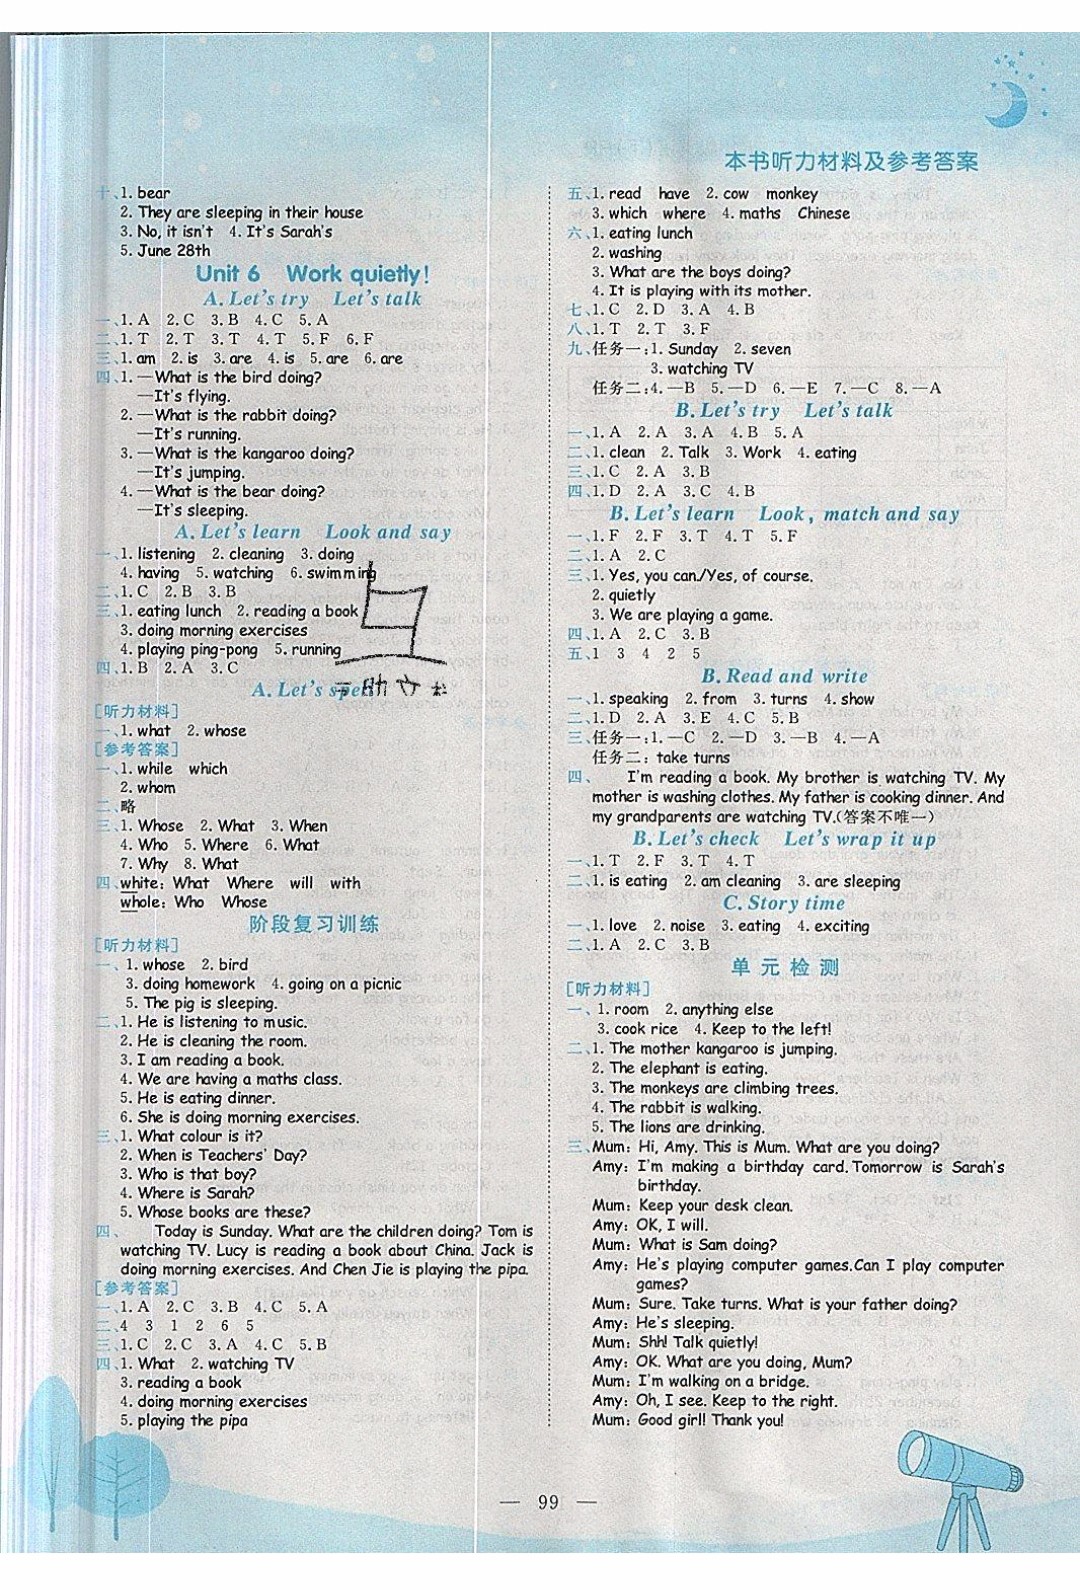 本书听力材料及参考答案
十、1. bear
2. They are sleeping in their house
3. No, it isn't 4. It's Sarah's
5. June 28th
Unit 6 Work quietly!
A. Let's try Let's talk
一、1. A 2. C 3. B 4. C 5. A
二、1. T 2. T 3. T 4. T 5. F 6. F
三、1. am 2. is 3. are 4. is 5. are 6. are
四、1. —What is the bird doing?
—It's flying.
2. —What is the rabbit doing?
—It's running.
3. —What is the kangaroo doing?
—It's jumping.
4. —What is the bear doing?
—It's sleeping.
A. Let's learn Look and say
一、1. listening 2. cleaning 3. doing
4. having 5. watching 6. swimming
二、1. C 2. B 3. B
三、1. eating lunch 2. reading a book
3. doing morning exercises
4. playing ping-pong 5. running
四、1. B 2. A 3. C
A. Let's spell
[听力材料]
一、1. what 2. whose
[参考答案]
一、1. while which
2. whom
二、略
三、1. Whose 2. What 3. When
4. Who 5. Where 6. What
7. Why 8. What
四、white: What Where will with
whole: Who Whose
阶段复习训练
[听力材料]
一、1. whose 2. bird
3. doing homework 4. going on a picnic
5. The pig is sleeping.
二、1. He is listening to music.
2. He is cleaning the room.
3. I am reading a book.
4. We are having a maths class.
5. He is eating dinner.
6. She is doing morning exercises.
三、1. What colour is it?
2. When is Teachers' Day?
3. Who is that boy?
4. Where is Sarah?
5. Whose books are these?
四、 Today is Sunday. What are the children doing? Tom is
watching TV. Lucy is reading a book about China. Jack is
doing morning exercises. And Chen Jie is playing the pipa.
[参考答案]
一、1. A 2. C 3. B 4. C 5. A
二、4 3 1 2 6 5
三、1. C 2. C 3. A 4. C 5. B
四、1. What 2. watching TV
3. reading a book
4. doing morning exercises
5. playing the pipa
五、1. read have 2. cow monkey
3. which where 4. maths Chinese
六、1. eating lunch
2. washing
3. What are the boys doing?
4. It is playing with its mother.
七、1. C 2. D 3. A 4. B
八、1. T 2. T 3. F
九、任务一:1. Sunday 2. seven
3. watching TV
任务二:4. —B 5. —D 6. —E 7. —C 8. —A
B. Let's try Let's talk
一、1. A 2. A 3. A 4. B 5. A
二、1. clean 2. Talk 3. Work 4. eating
三、1. C 2. A 3. B
四、1. D 2. A 3. C 4. B
B. Let's learn Look, match and say
一、1. F 2. F 3. T 4. T 5. F
二、1. A 2. C
三、1. Yes, you can./Yes, of course.
2. quietly
3. We are playing a game.
四、1. A 2. C 3. B
五、1 3 4 2 5
B. Read and write
一、1. speaking 2. from 3. turns 4. show
二、1. D 2. A 3. E 4. C 5. B
三、任务一:1. —C 2. —D 3. —B 4. —A
任务二: take turns
四、 I'm reading a book. My brother is watching TV. My
mother is washing clothes. My father is cooking dinner. And
my grandparents are watching TV.(答案不唯一)
B. Let's check Let's wrap it up
一、1. T 2. F 3. T 4. T
二、1. is eating 2. am cleaning 3. are sleeping
C. Story time
一、1. love 2. noise 3. eating 4. exciting
二、1. A 2. C 3. B
单元检测
[听力材料]
一、1. room 2. anything else
3. cook rice 4. Keep to the left!
二、1. The mother kangaroo is jumping.
2. The elephant is eating.
3. The monkeys are climbing trees.
4. The rabbit is walking.
5. The lions are drinking.
三、Mum: Hi, Amy. This is Mum. What are you doing?
Amy: I'm making a birthday card. Tomorrow is Sarah's
birthday.
Mum: Keep your desk clean.
Amy: OK, I will.
Mum: What is Sam doing?
Amy: He's playing computer games.Can I play computer
games?
Mum: Sure. Take turns. What is your father doing?
Amy: He's sleeping.
Mum: Shh! Talk quietly!
Amy: OK. What are you doing, Mum?
Mum: I'm walking on a bridge.
Amy: Oh, I see. Keep to the right.
Mum: Good girl! Thank you!
— 99 —